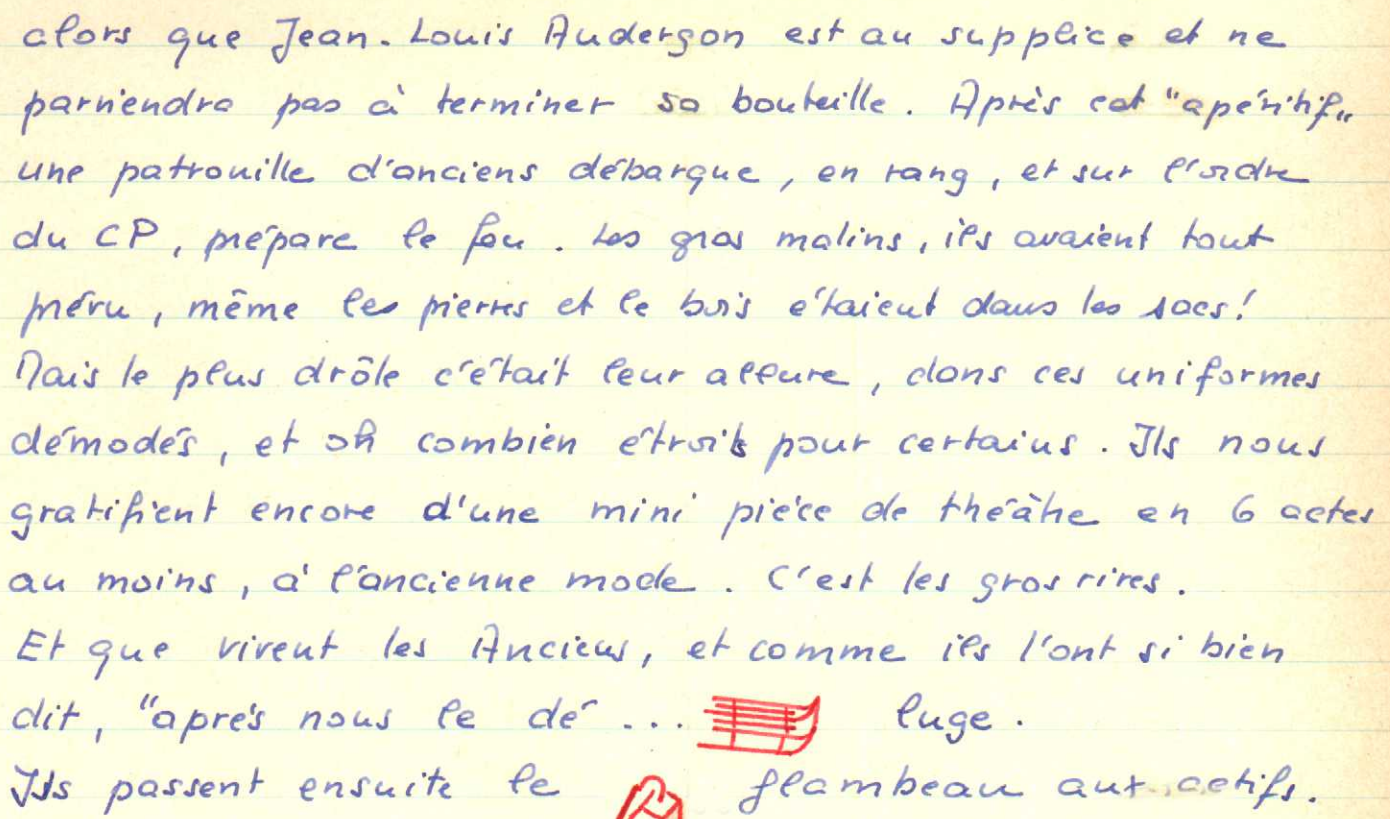 alors que Jean-Louis Audergon est au supplice et ne
parviendra pas à terminer sa bouteille. Après cet "apéritif"
une patrouille d'anciens débarque, en rang, et sur l'ordre
du CP, prépare le feu. Les gros malins, ils avaient tout
prévu, même les pierres et le bois étaient dans les sacs!
Mais le plus drôle c'était leur allure, dans ces uniformes
démodés, et oh combien étroits pour certains. Ils nous
gratifient encore d'une mini pièce de théâtre en 6 actes
au moins, à l'ancienne mode. C'est les gros rires.
Et que vivent les Anciens, et comme ils l'ont si bien
dit, "après nous le dé ... luge.
Ils passent ensuite le flambeau aux actifs.